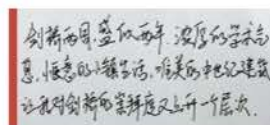 剑桥两周，盛似两年，浓厚的学术气
息，惬意的小镇生活，唯美的中世纪建筑
让我对剑桥的崇拜度又上升一个层次.